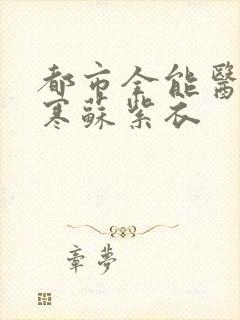 都市全能醫
寒蘇紫衣
章夢